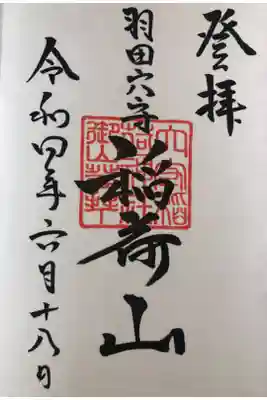 登拝
羽田穴守
稲荷山
令和四年六月十八日